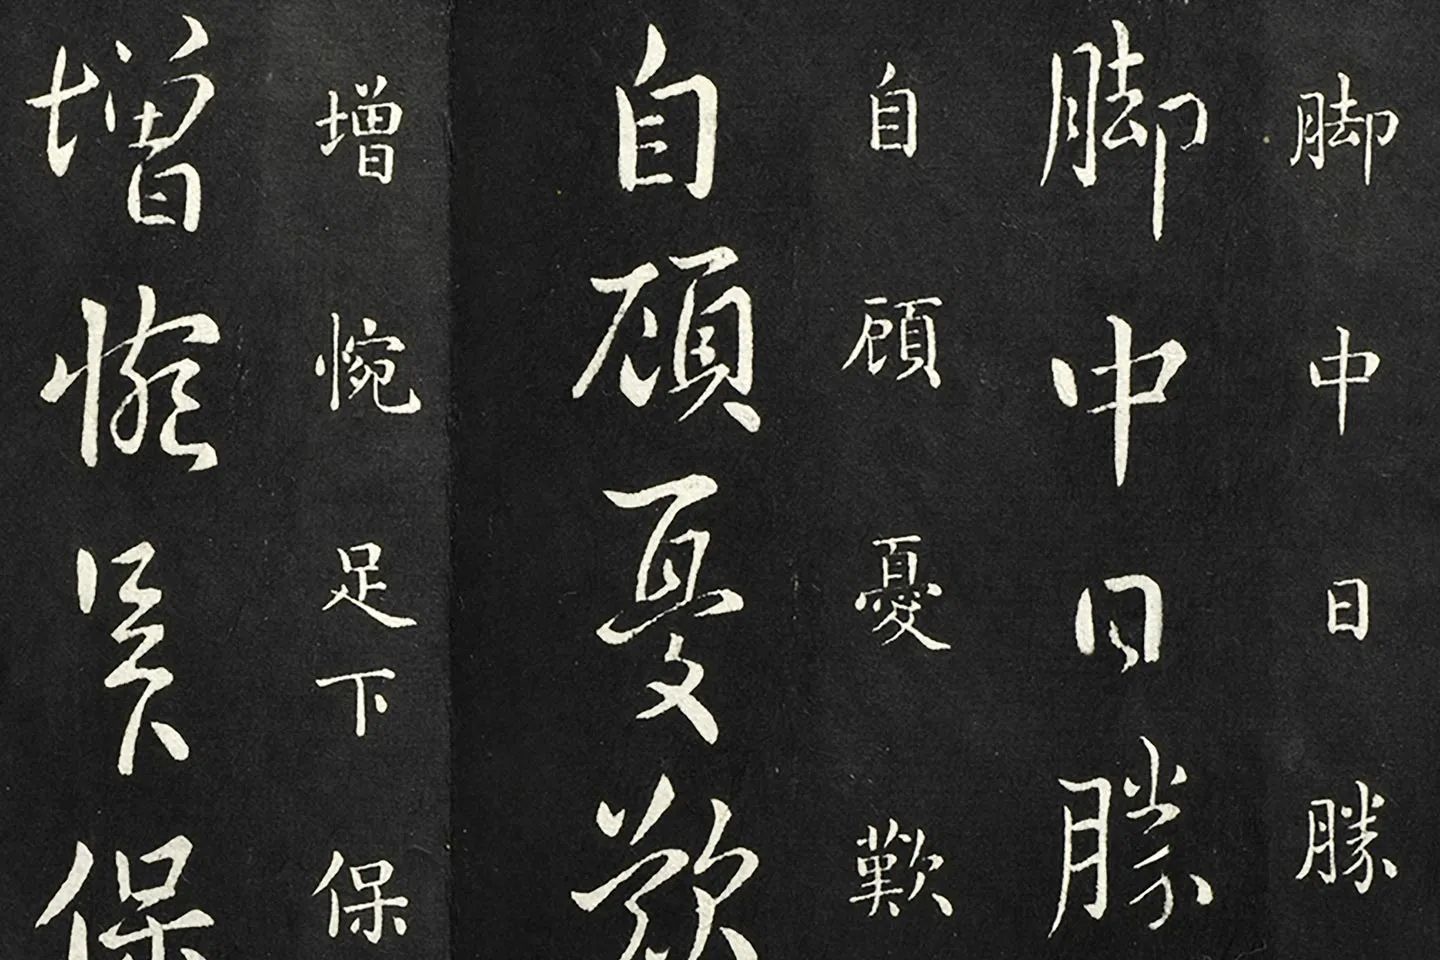 脚中日勝
脚中日勝
自顧憂歎
自顧憂歎
增惋足下保
增惋足下保